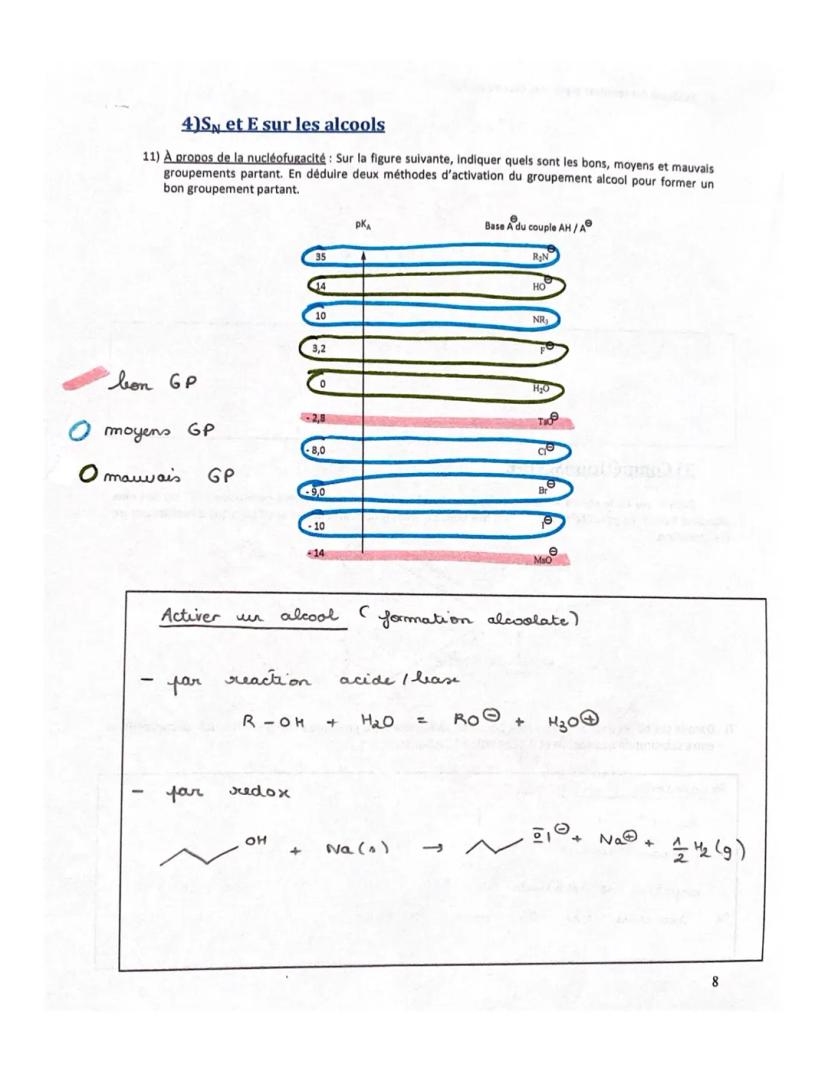 4)SN et E sur les alcools
11) À propos de la nucléofugacité : Sur la figure suivante, indiquer quels sont les bons, moyens et mauvais
groupements partant. En déduire deux méthodes d'activation du groupement alcool pour former un
bon groupement partant.
pKA Base A⊖ du couple AH / A⊖
35 R2N⊖
14 HO⊖
10 NR3
3,2 F⊖
0 H2O
bon GP
- 2,8 TsO⊖
moyens GP
- 8,0 Cl⊖
mauvais GP
- 9,0 Br⊖
- 10 I⊖
- 14 MsO⊖
Activer un alcool ( formation alcoolate)
- par reaction acide / base
R - OH + H2O = RO⊖ + H3O⊕
- par redox
OH + Na (s) → O⊖ + Na⊕ + 1/2 H2 (g)
8